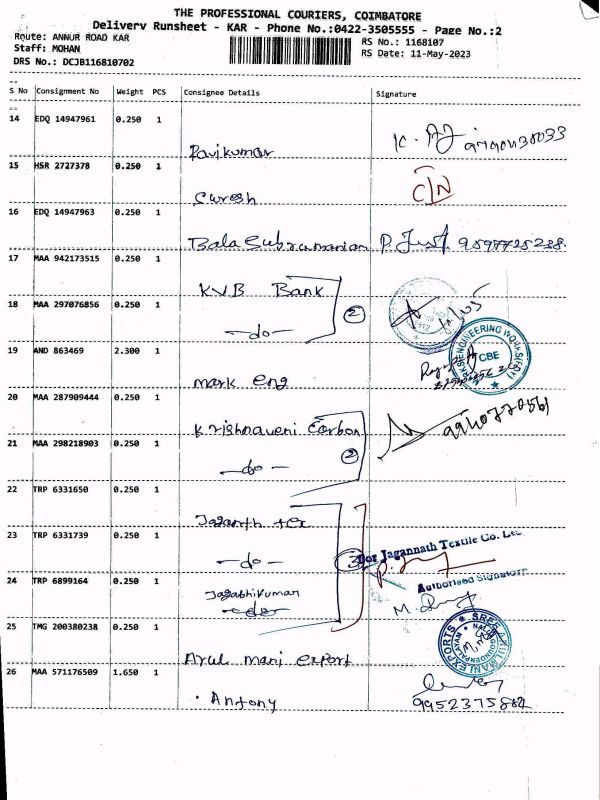 THE PROFESSIONAL COURIERS, COIMBATORE
Delivery Runsheet - KAR - Phone No.:0422-3505555 - Page No.:2
Route: ANNUR ROAD KAR
RS No.: 1168107
Staff: MOHAN
RS Date: 11-May-2023
DRS No.: DCJB116810702
S No Consignment No Weight PCS Consignee Details Signature
14 EDQ 14947961 0.250 1
Ravikumar
15 HSR 2727378 0.250 1
Suresh CIN
16 EDQ 14947963 0.250 1
Bala Subramanian
17 MAA 942173515 0.250 1
KVB Bank
18 MAA 297076856 0.250 1
-do- 2
19 AND 863469 2.300 1
ENGINEERING WORKS
CBE
mark eng
20 MAA 287909444 0.250 1
Krishnaveni Carbon
21 MAA 298218903 0.250 1
-do- 2
22 TRP 6331650 0.250 1
Jaganth tex
23 TRP 6331739 0.250 1
-do- 3 For Jagannath Textile Co. Ltd
24 TRP 6899164 0.250 1
Authorised Signatory
-do-
25 TMG 200380238 0.250 1
Arul mani export
26 MAA 571176509 1.650 1
Antony